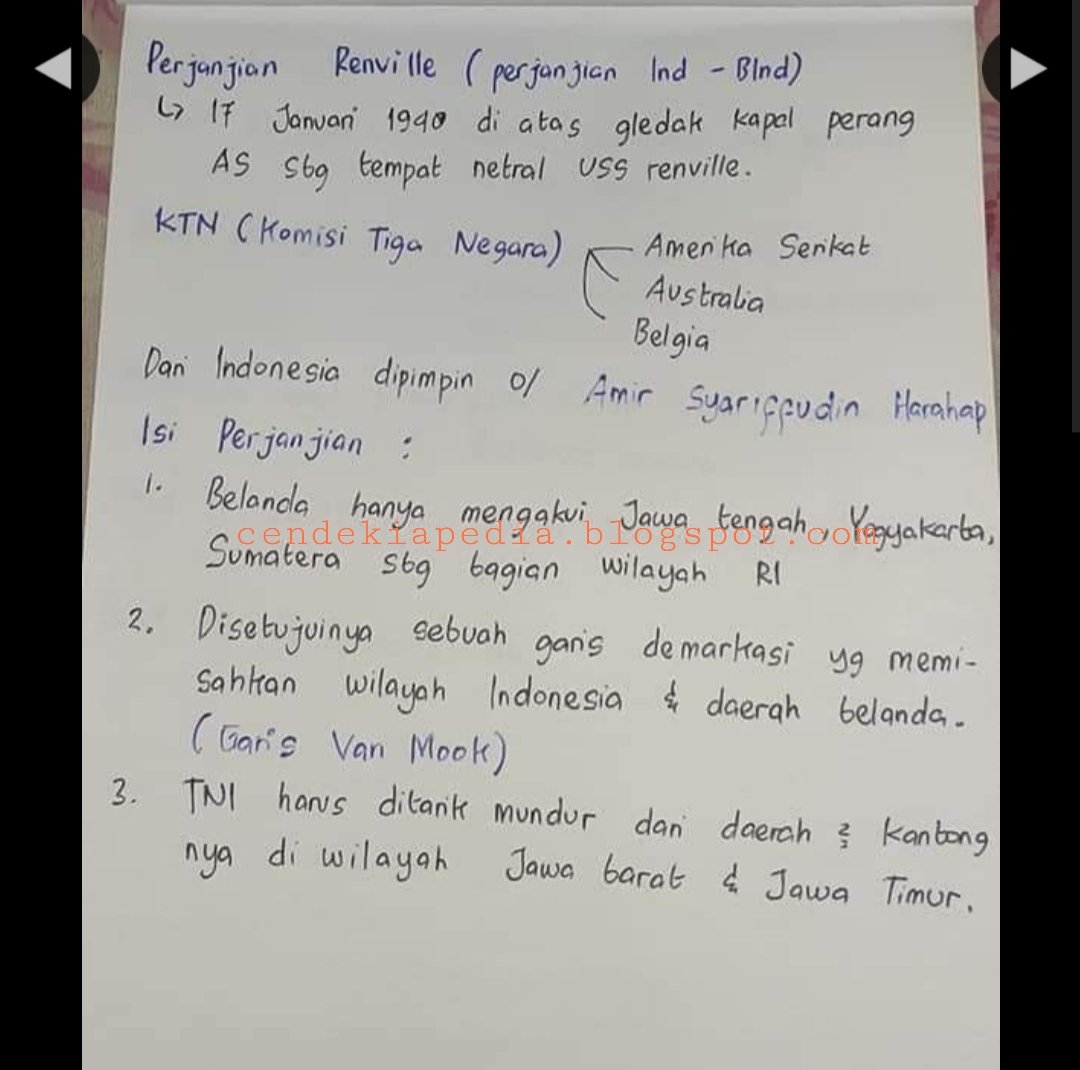 Perjanjian Renville ( perjanjian Ind - Blnd)
↳ 17 Januari 1940 di atas gledak kapal perang
AS sbg tempat netral USS renville.
KTN ( Komisi Tiga Negara) Amerika Serikat
Australia
Belgia
Dari Indonesia dipimpin o/ Amir Syariffudin Harahap
Isi Perjanjian :
1. Belanda hanya mengakui Jawa tengah, Yogyakarta,
cendekiapedia.blogspot.com
Sumatera sbg bagian wilayah RI
2. Disetujuinya sebuah garis demarkasi yg memi-
sahkan wilayah Indonesia & daerah belanda.
( Garis Van Mook)
3. TNI harus ditarik mundur dari daerah 2 kantong
nya di wilayah Jawa barat & Jawa Timur.